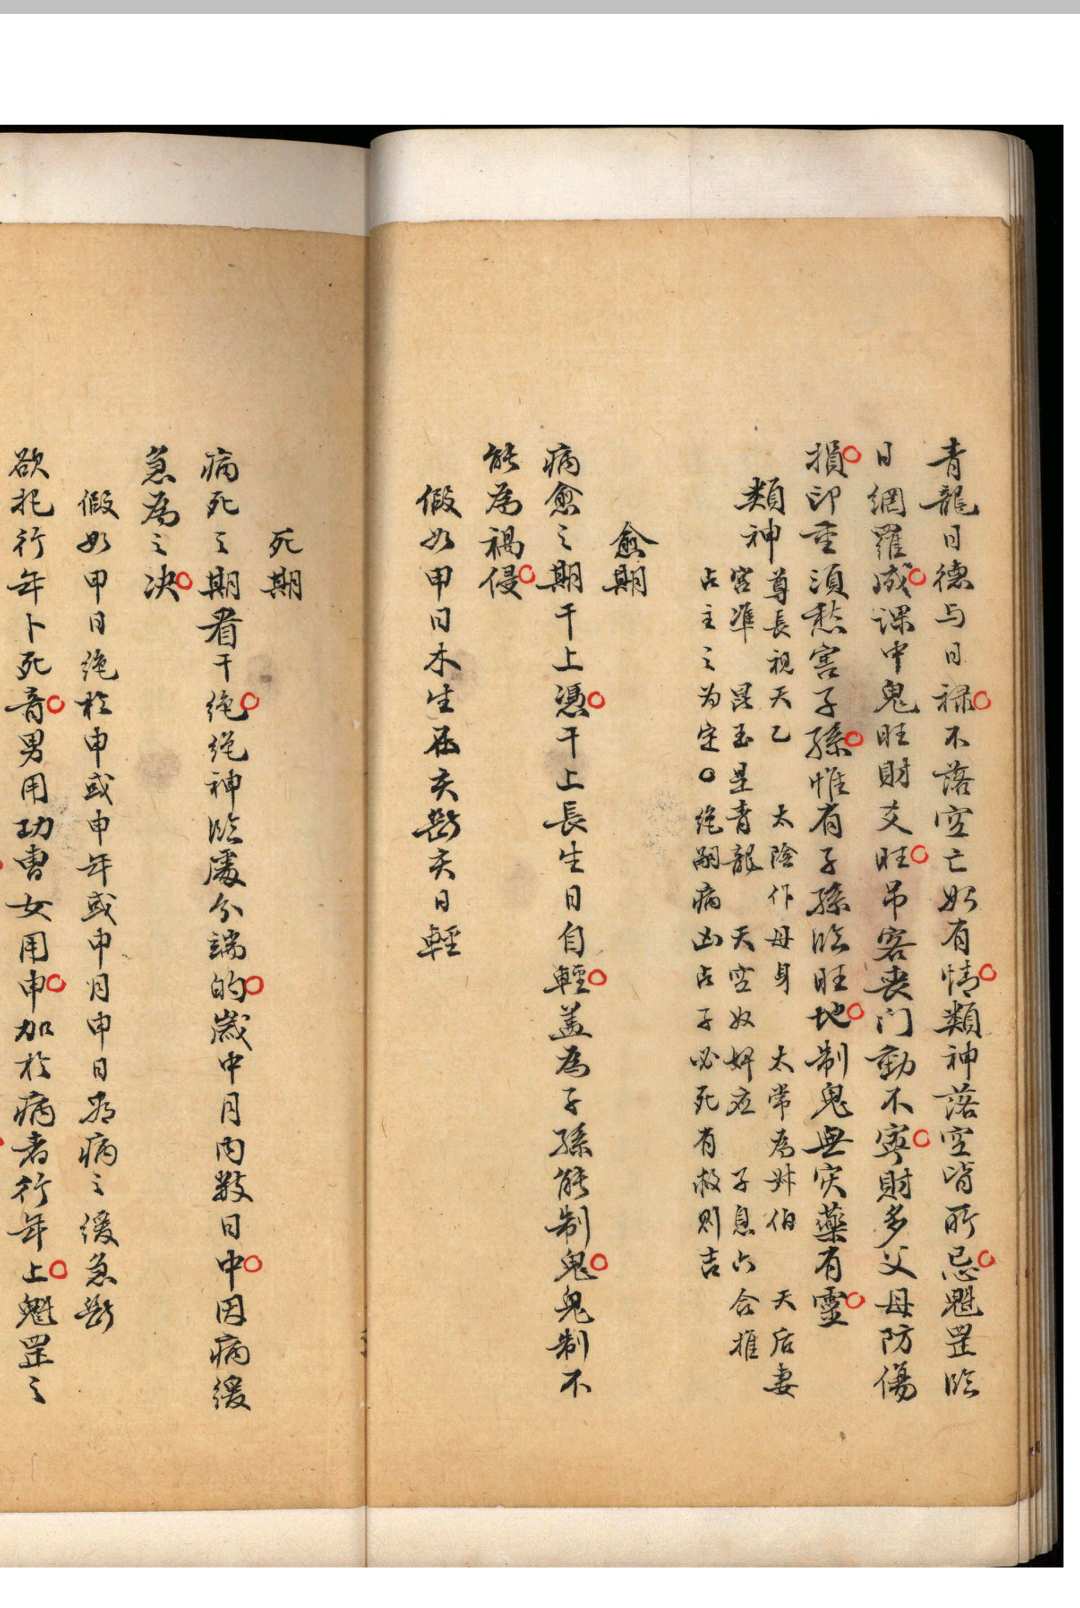 青龍日德与日禄不落空亡始有情類神落空皆所忌魁罡臨
日網羅成课中鬼旺財爻旺吊客丧门動不寧財多父母防傷
損印重須愁害子孫惟有子孫临旺地制鬼無灾藥有靈
類神
尊長視天乙 太陰作母身 太常為妹伯 天后妻
宫準 是玉是青龍 天空奴婢应 子息六合推
占主之为定○绝嗣病凶占子必死有救则吉
愈期
病愈之期干上憑干上長生日自輕盖為子孫能制鬼鬼制不
能為禍侵
假如甲日木生在亥断亥日輕
死期
病死之期看干绝绝神临處分端的歲中月内数日中因病緩
急為之决
假如甲日绝於申或申年或申月申日看病之缓急断
欲把行年卜死音男用功曹女用申加於病者行年上魁罡之